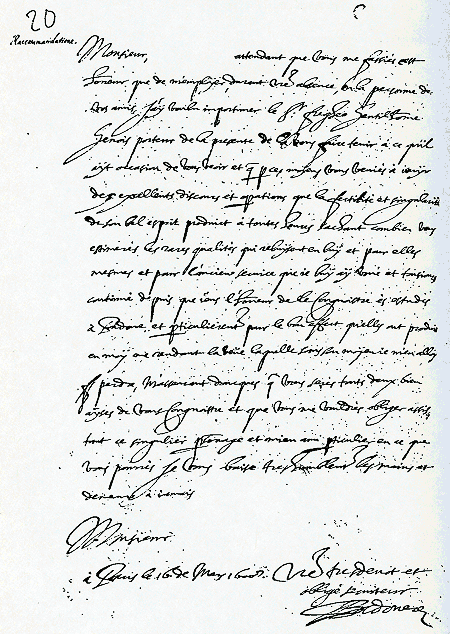 20
Raccomandatione.
Monsieur,
attendant que vous me faciés cest
honneur que de m'emploier, durant vre absence, en la personne de
vos amis, j'ay voulu importuner le Sr gentilhomme
Genois porteur de la presente de la vous faire tenir à ce qu'il
ayt occasion de vous voir et q p ces moiens vous veniés à jouir
des excellents discours et que la fertilité et singularité
de son bel esprit produict à toutes heures sachant combien vous
estimeriés les rares qualités qui reluysent en luy et pour elles
mesmes et pour l'ancien service que je luy ay voué et tousjours
continué depuis que j'eus l'honneur de le congnoistre és estudes
à Padoue, et pticulierement pour le bon effect qu'elles ont produit
en moy me rendant la voie laquelle sans son moyen je m'en allois
perdre, M'asseurant doncques q vous serés touts deux bien
ayses de vous congnoistre et que vous me vouldriés obliger
tout ce singulier psonage et mien amy pticulier en ce que
vous pourrés je vous baise tres humblement les mains et
demeure à jamais
Monsieur
à Paris le 16 de May 1607. Vre tres devot et
obligé serviteur